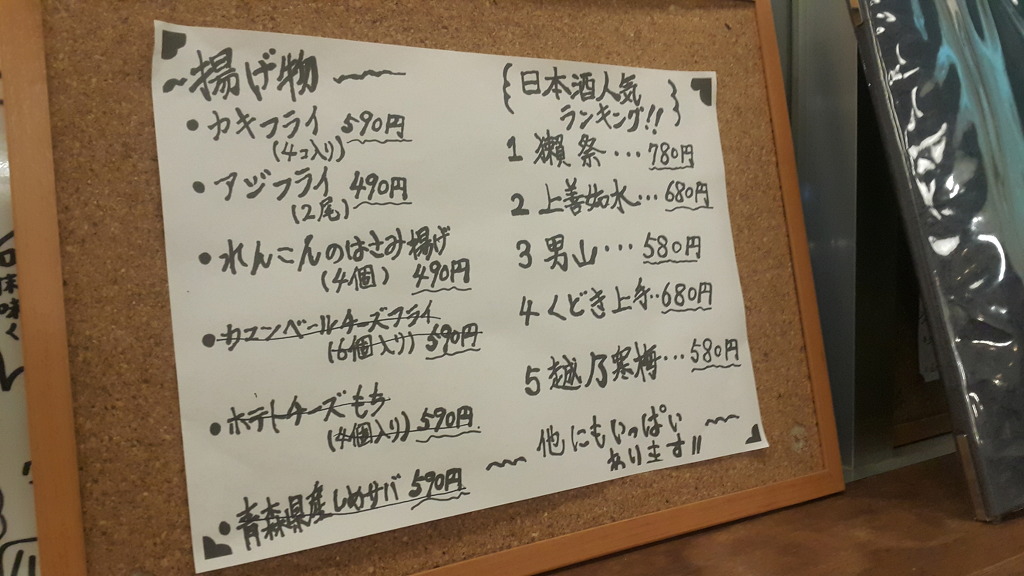 ~揚げ物~
• カキフライ 590円
(4コ入り)
• アジフライ 490円
(2尾)
• れんこんのはさみ揚げ
(4個) 490円
• カマンベールチーズフライ
(6個入り) 590円
• ポテトチーズもち
(4個入り) 590円
• 青森県産しめサバ 590円
{日本酒人気
ランキング!!}
1 獺祭・・・780円
2 上善如水・・・680円
3 男山・・・580円
4 くどき上手・・680円
5 越乃寒梅・・・580円
~他にもいっぱい~
あります!!